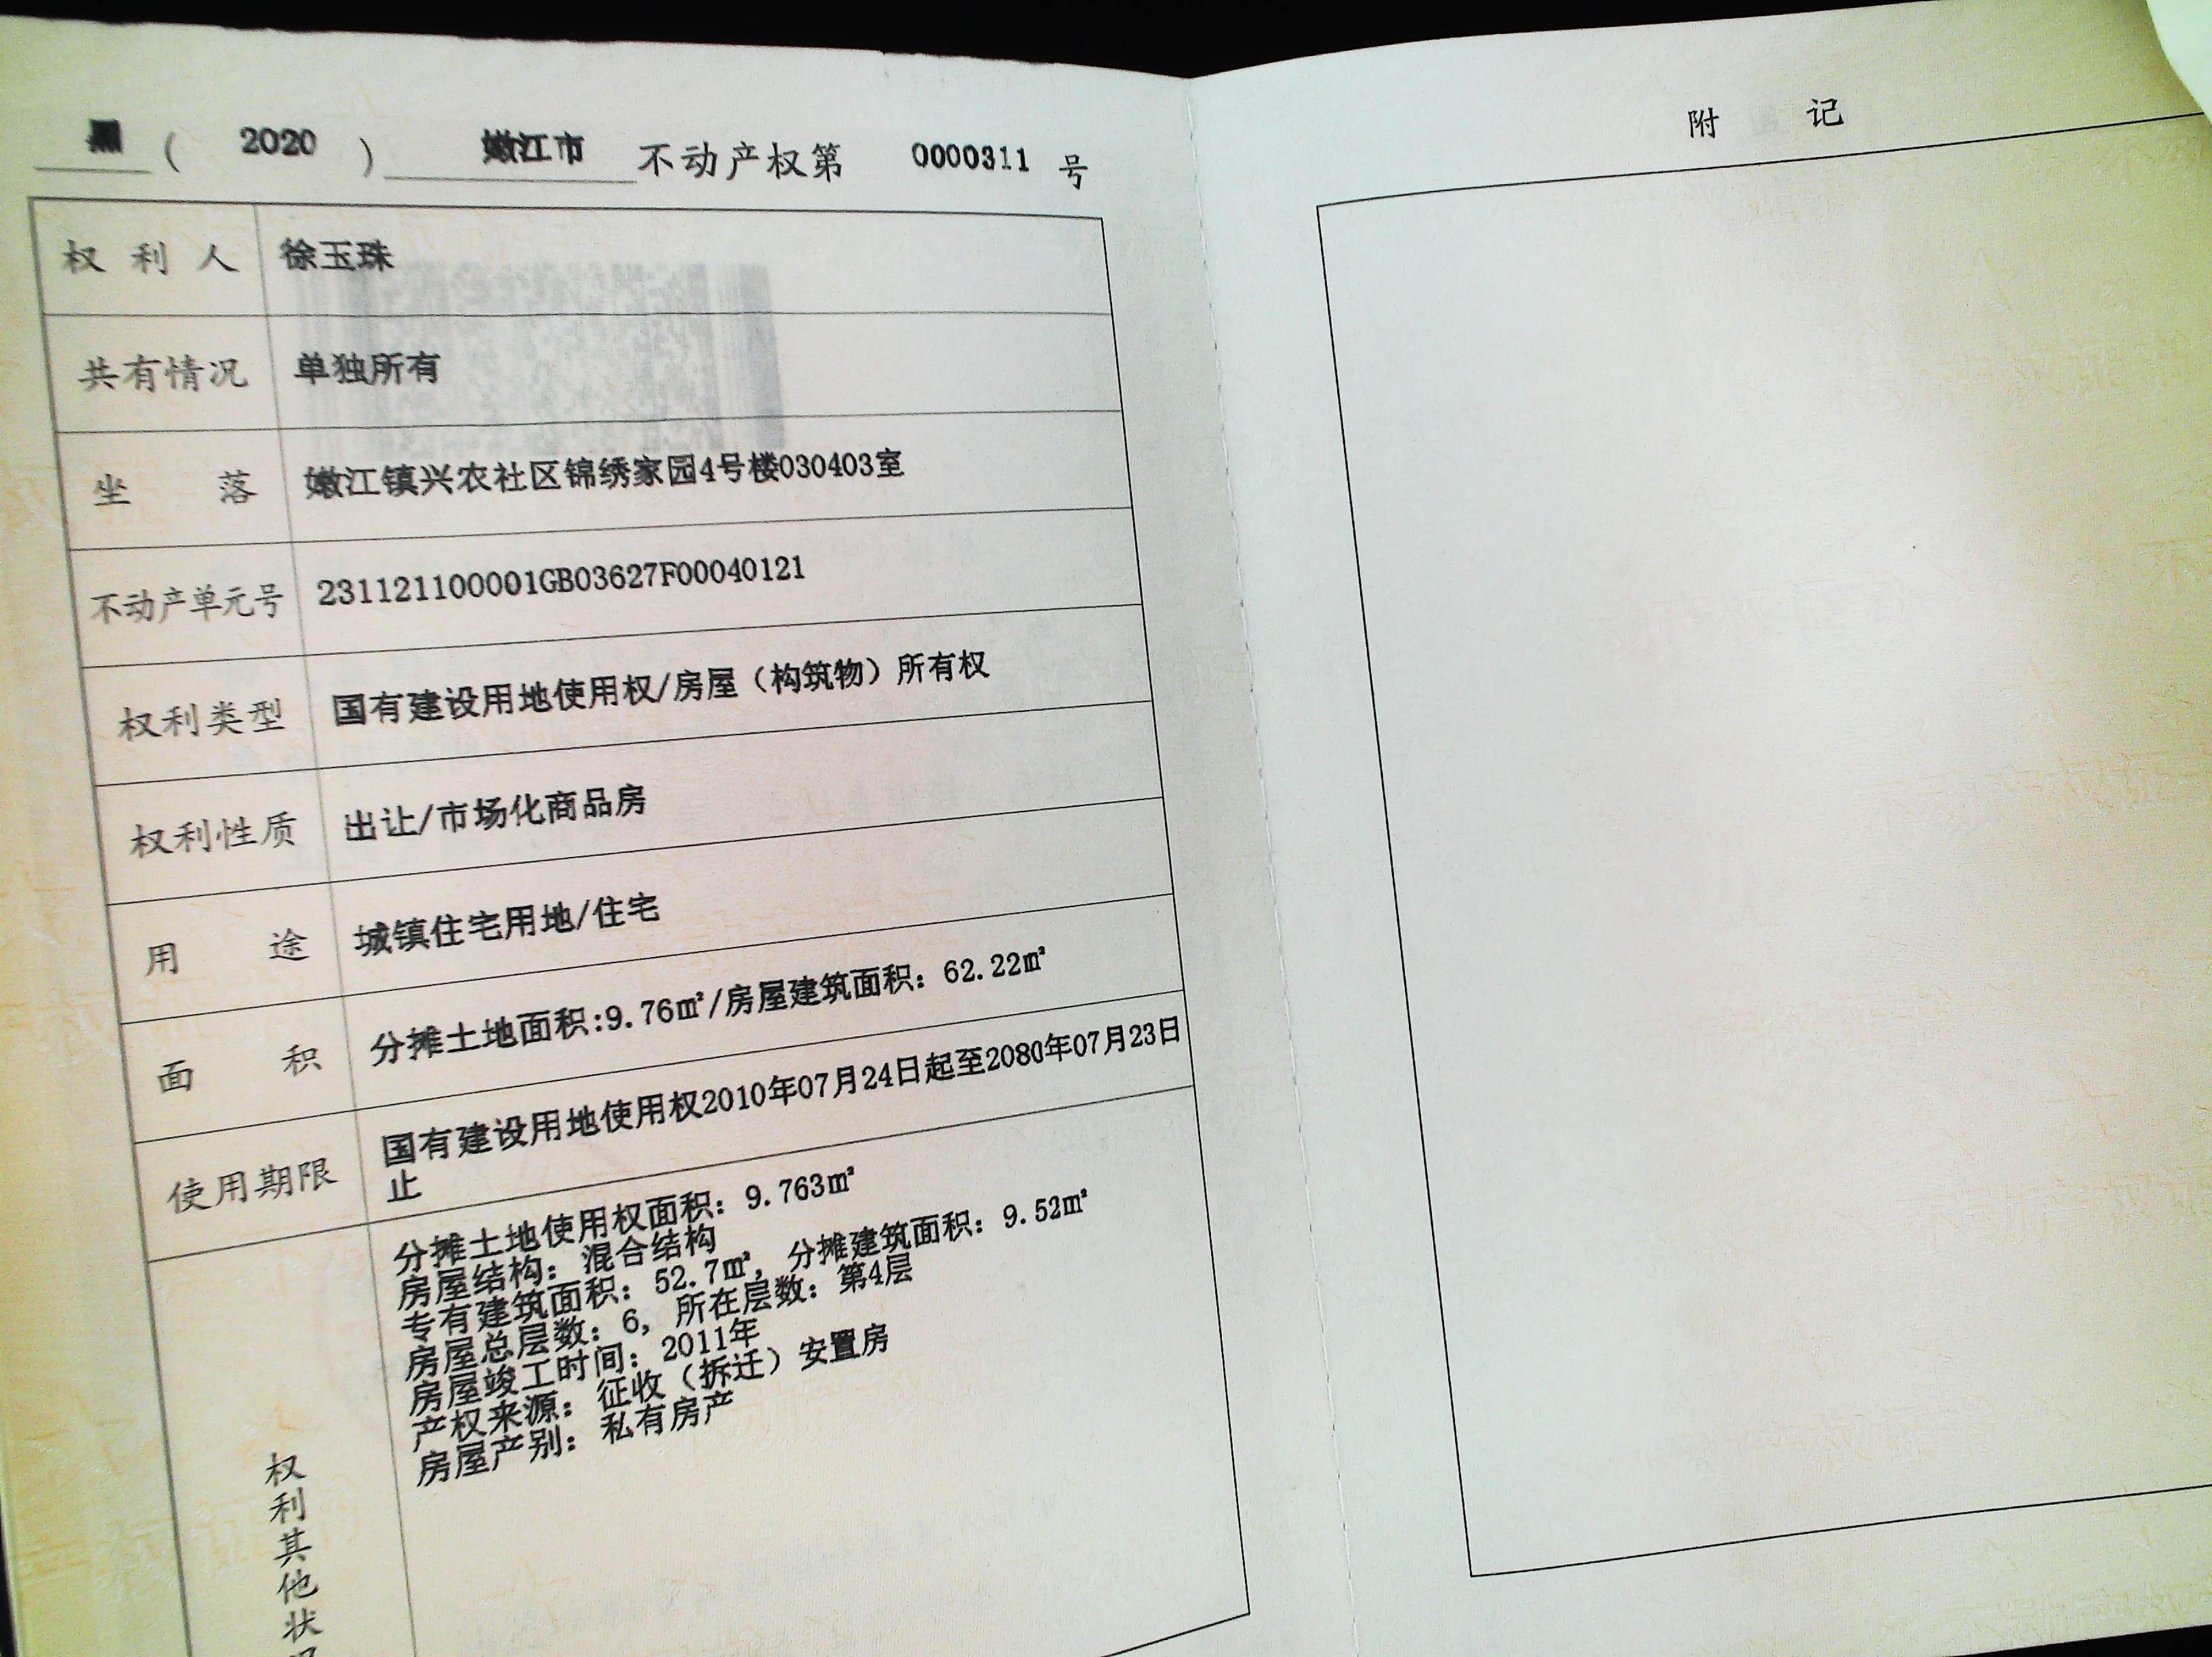 黑（2020）嫩江市不动产权第0000311号
权利人 徐玉珠
共有情况 单独所有
坐落 嫩江镇兴农社区锦绣家园4号楼030403室
不动产单元号 231121100001GB03627F00040121
权利类型 国有建设用地使用权/房屋（构筑物）所有权
权利性质 出让/市场化商品房
用途 城镇住宅用地/住宅
面积 分摊土地面积:9.76㎡/房屋建筑面积：62.22㎡
使用期限 国有建设用地使用权2010年07月24日起至2080年07月23日
止
权利其他状
分摊土地使用权面积：9.763㎡
房屋结构：混合结构
专有建筑面积：52.7㎡，分摊建筑面积：9.52㎡
房屋总层数：6，所在层数：第4层
房屋竣工时间：2011年
产权来源：征收（拆迁）安置房
房屋产别：私有房产
附记